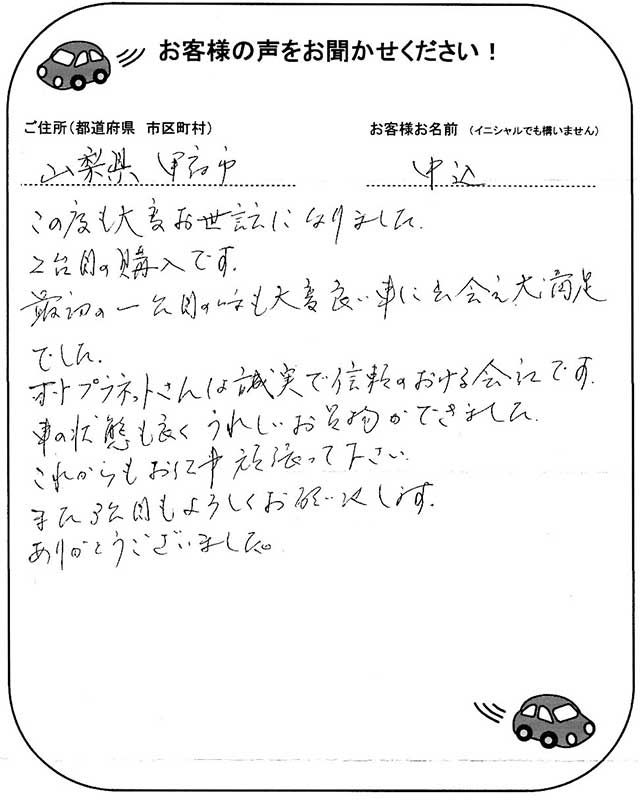 お客様の声をお聞かせください！
ご住所（都道府県　市区町村）
お客様お名前　（イニシャルでも構いません）
山梨県 甲府市
中込
この度も大変お世話になりました.
2台目の購入です.
最初の一台目の時も大変良い車に出会え大満足
でした.
オートプラネットさんは誠実で信頼のおける会社です.
車の状態も良くうれしいお買物ができました.
これからもお仕事頑張って下さい.
また3台目もよろしくお願い致します.
ありがとうございました。